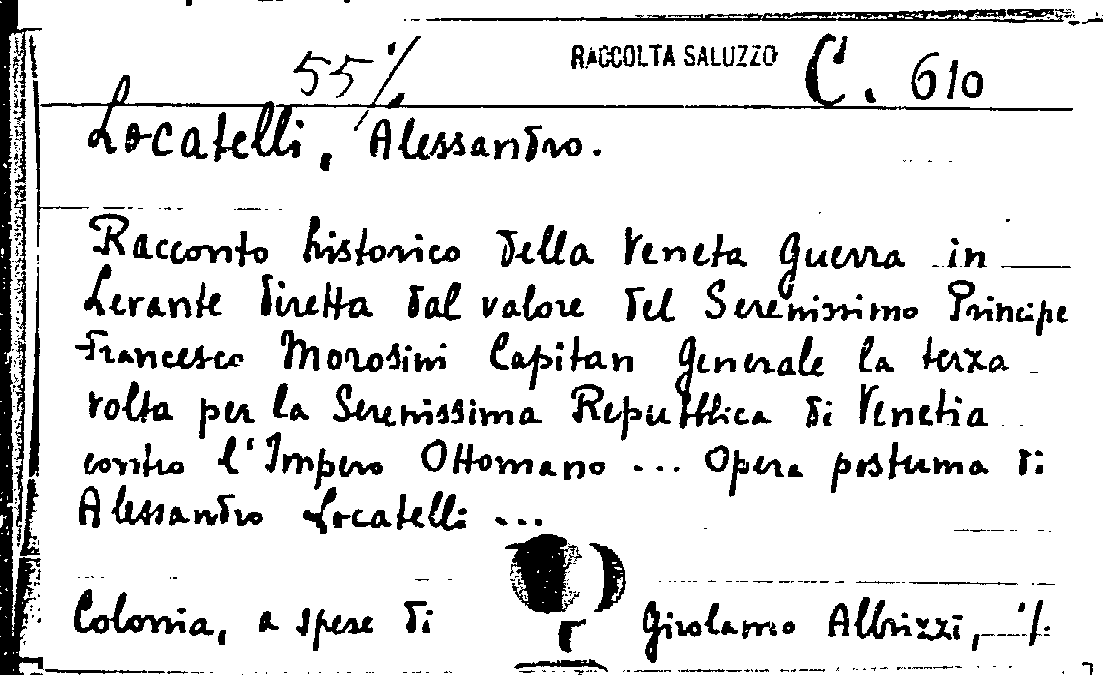 55 ·/. RACCOLTA SALUZZO C. 610
Locatelli, Alessandro.
Racconto historico della Veneta guerra in
Levante diretta dal valore del Serenissimo Principe
Francesco Morosini Capitan Generale la terza
volta per la Serenissima Repubblica di Venetia
contro l'Impero Ottomano ... Opera postuma di
Alessandro Locatelli ...
Colonia, a spese di Girolamo Albrizzi, ·/.